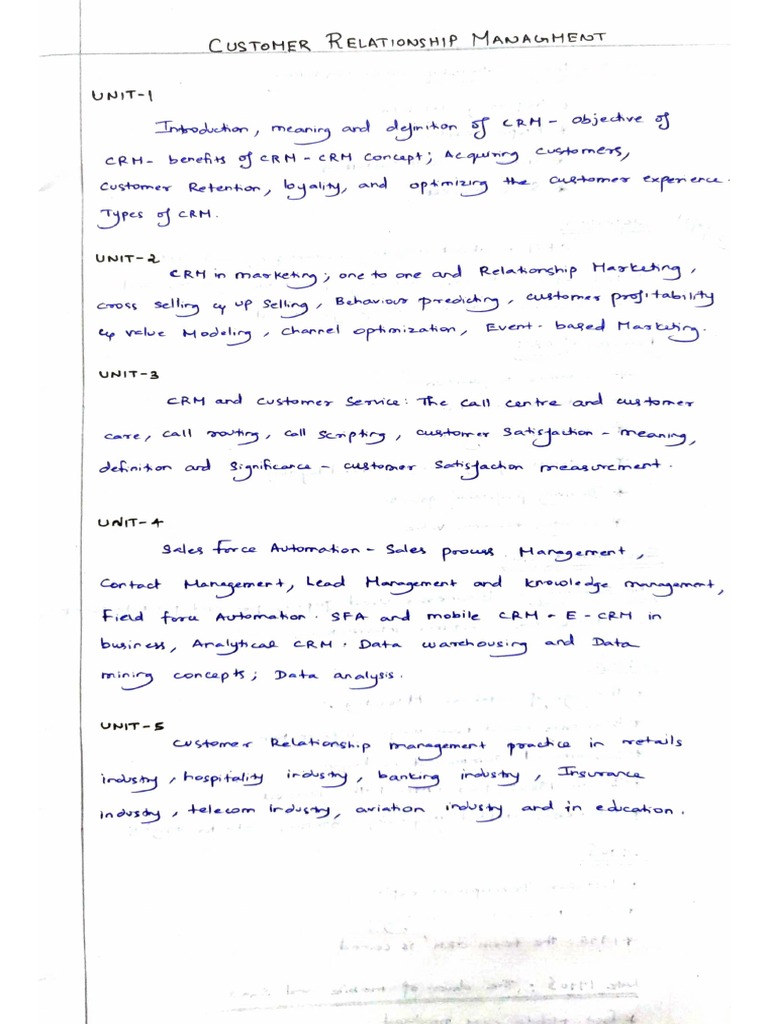 CUSTOMER RELATIONSHIP MANAGMENT
UNIT-1
Introduction, meaning and definition of CRM - objective of
CRM - benefits of CRM - CRM concept; Acquiring customers,
Customer Retention, loyality, and optimizing the customer experience.
Types of CRM.
UNIT-2
CRM in marketing; one to one and Relationship Marketing,
cross selling & up selling, Behaviour predicting, customer profitability
& value Modeling, channel optimization, Event-based Marketing.
UNIT-3
CRM and customer service: The call centre and customer
care, call routing, call scripting, customer satisfaction - meaning,
definition and significance - customer satisfaction measurement.
UNIT-4
Sales force Automation - Sales process Management,
Contact Management, Lead Management and knowledge management,
Field force Automation. SFA and mobile CRM - E-CRM in
business, Analytical CRM. Data warehousing and Data
mining concepts; Data analysis.
UNIT-5
Customer Relationship management practice in retails
industry, hospitality industry, banking industry, Insurance
industry, telecom industry, aviation industry and in education.